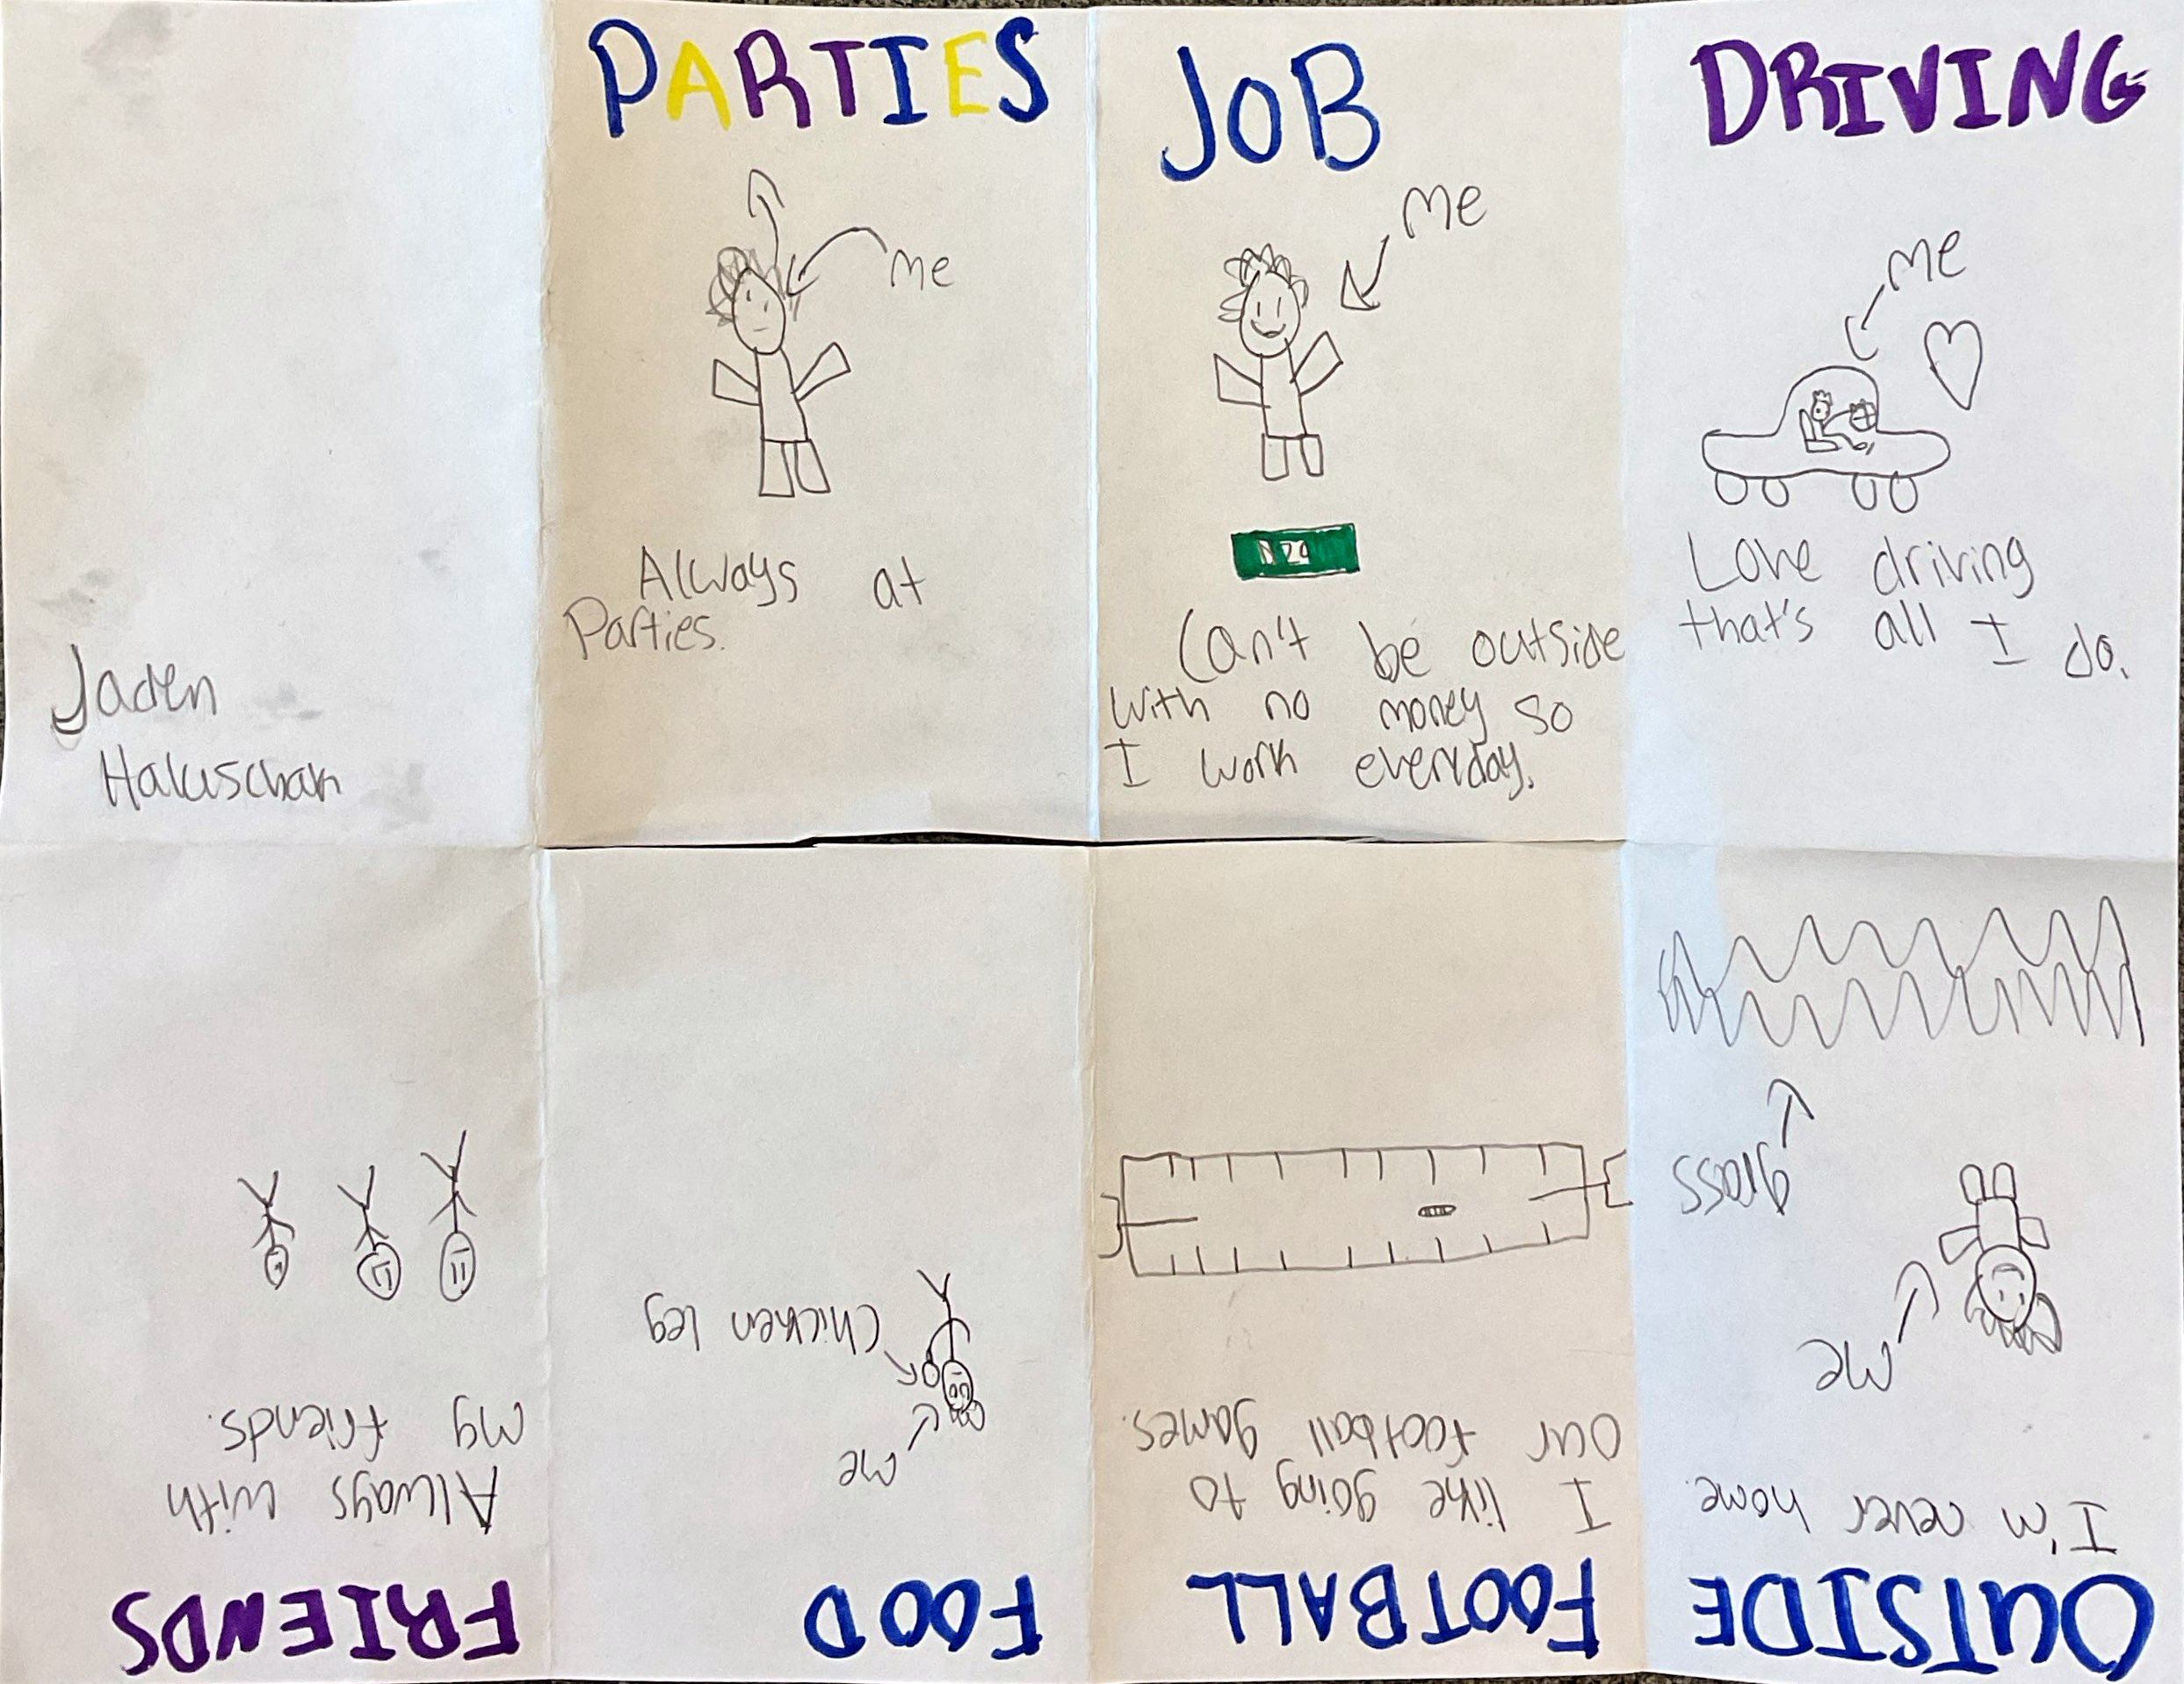 Jaden
Haluschak
PARTIES
me
Always at
Parties.
JOB
me
Can't be outside
with no money so
I work everyday.
DRIVING
me
Love driving
that's all I do.
OUTSIDE
I'm never home.
me
grass
FOOTBALL
I like going to
our football games.
FOOD
me
chicken leg
FRIENDS
Always with
my friends.